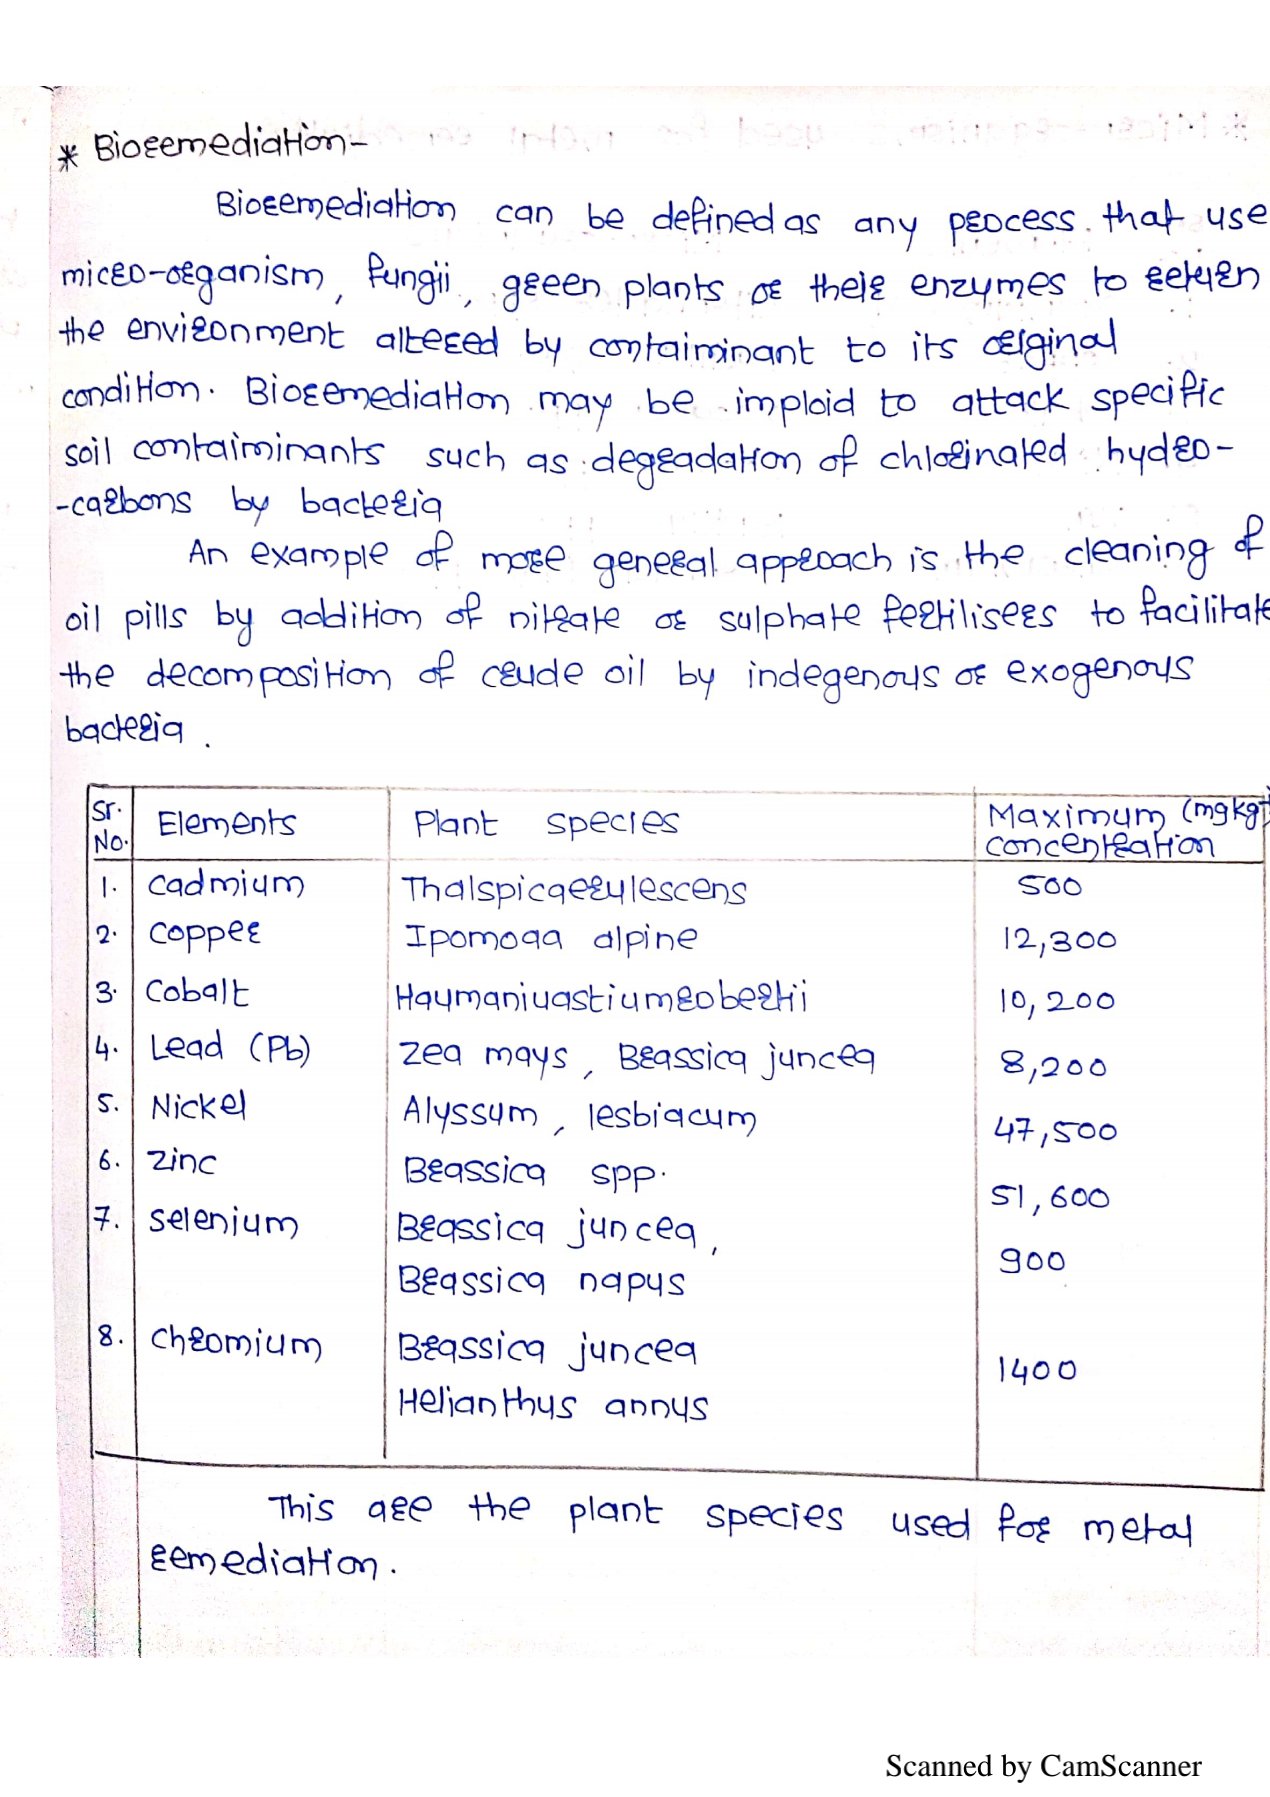 * Bioremediation-
Bioremediation can be defined as any process that use
micro-organism, fungii, green plants or their enzymes to return
the environment altered by contaiminant to its original
condition. Bioremediation may be imploid to attack specific
soil contaiminants such as degradation of chlorinated hydro-
-carbons by bacteria
An example of more general approach is the cleaning of
oil pills by addition of nitrate or sulphate fertilisers to facilitate
the decomposition of crude oil by indegenous or exogenous
bacteria.
Sr. No. Elements Plant species Maximum (mgkg-1) concentration
1. Cadmium Thalspicaerulescens 500
2. Copper Ipomoaa alpine 12,300
3. Cobalt Haumaniuastiumrobertii 10,200
4. Lead (Pb) Zea mays, Brassica juncea 8,200
5. Nickel Alyssum, lesbiacum 47,500
6. Zinc Brassica spp. 51,600
7. Selenium Brassica juncea, 900
Brassica napus
8. Chromium Brassica juncea 1400
Helianthus annus
This are the plant species used for metal
remediation.
Scanned by CamScanner